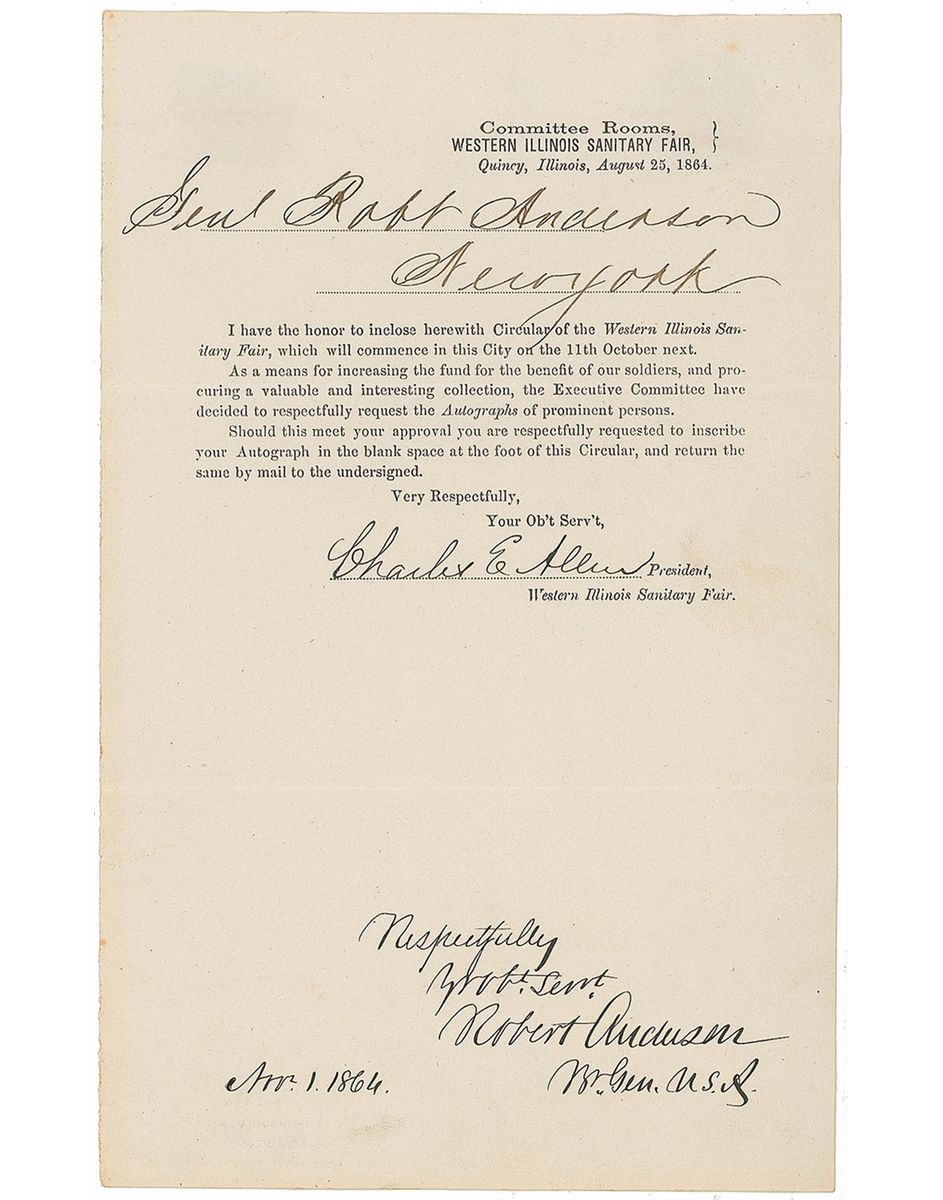 Committee Rooms,
WESTERN ILLINOIS SANITARY FAIR, }
Quincy, Illinois, August 25, 1864.
Genl Robt Anderson
New York
I have the honor to inclose herewith Circular of the Western Illinois San-
itary Fair, which will commence in this City on the 11th October next.
As a means for increasing the fund for the benefit of our soldiers, and pro-
curing a valuable and interesting collection, the Executive Committee have
decided to respectfully request the Autographs of prominent persons.
Should this meet your approval you are respectfully requested to inscribe
your Autograph in the blank space at the foot of this Circular, and return the
same by mail to the undersigned.
Very Respectfully,
Your Ob't Serv't,
Charles E Allen President,
Western Illinois Sanitary Fair.
Respectfully
Yr Obt. Servt.
Robert Anderson
Nov. 1. 1864. Br. Gen. U.S.A.